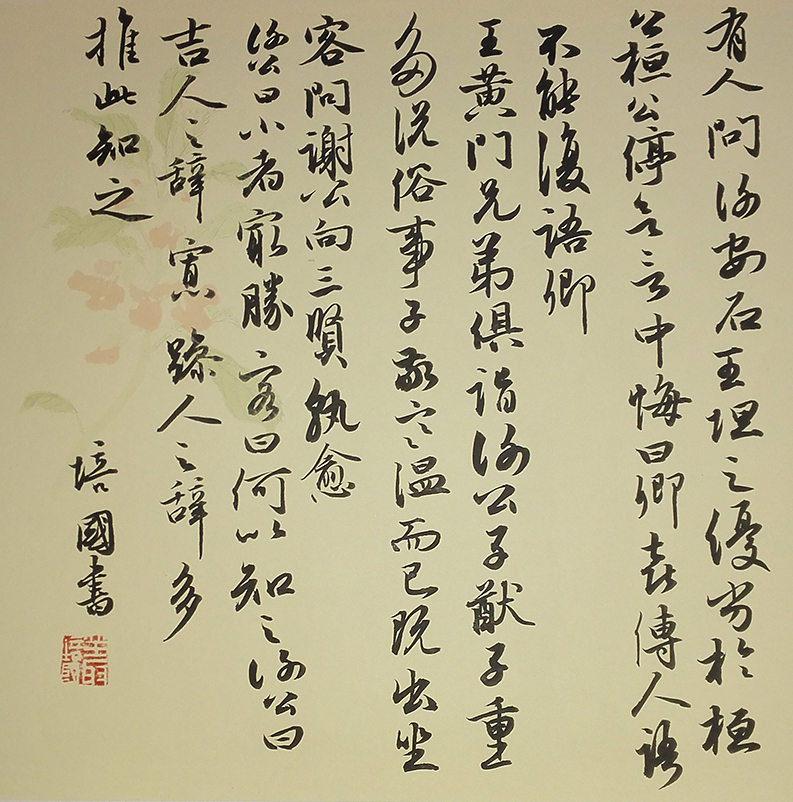 有人問謝安石王坦之優劣於桓
公桓公停欲言中悔曰卿喜傳人語
不能復語卿
王黃門兄弟俱詣謝公子猷子重
多說俗事子敬寒溫而已既出坐
客問謝公向三賢孰愈
謝公曰小者最勝客曰何以知之謝公曰
吉人之辭寡躁人之辭多
推此知之
培國書